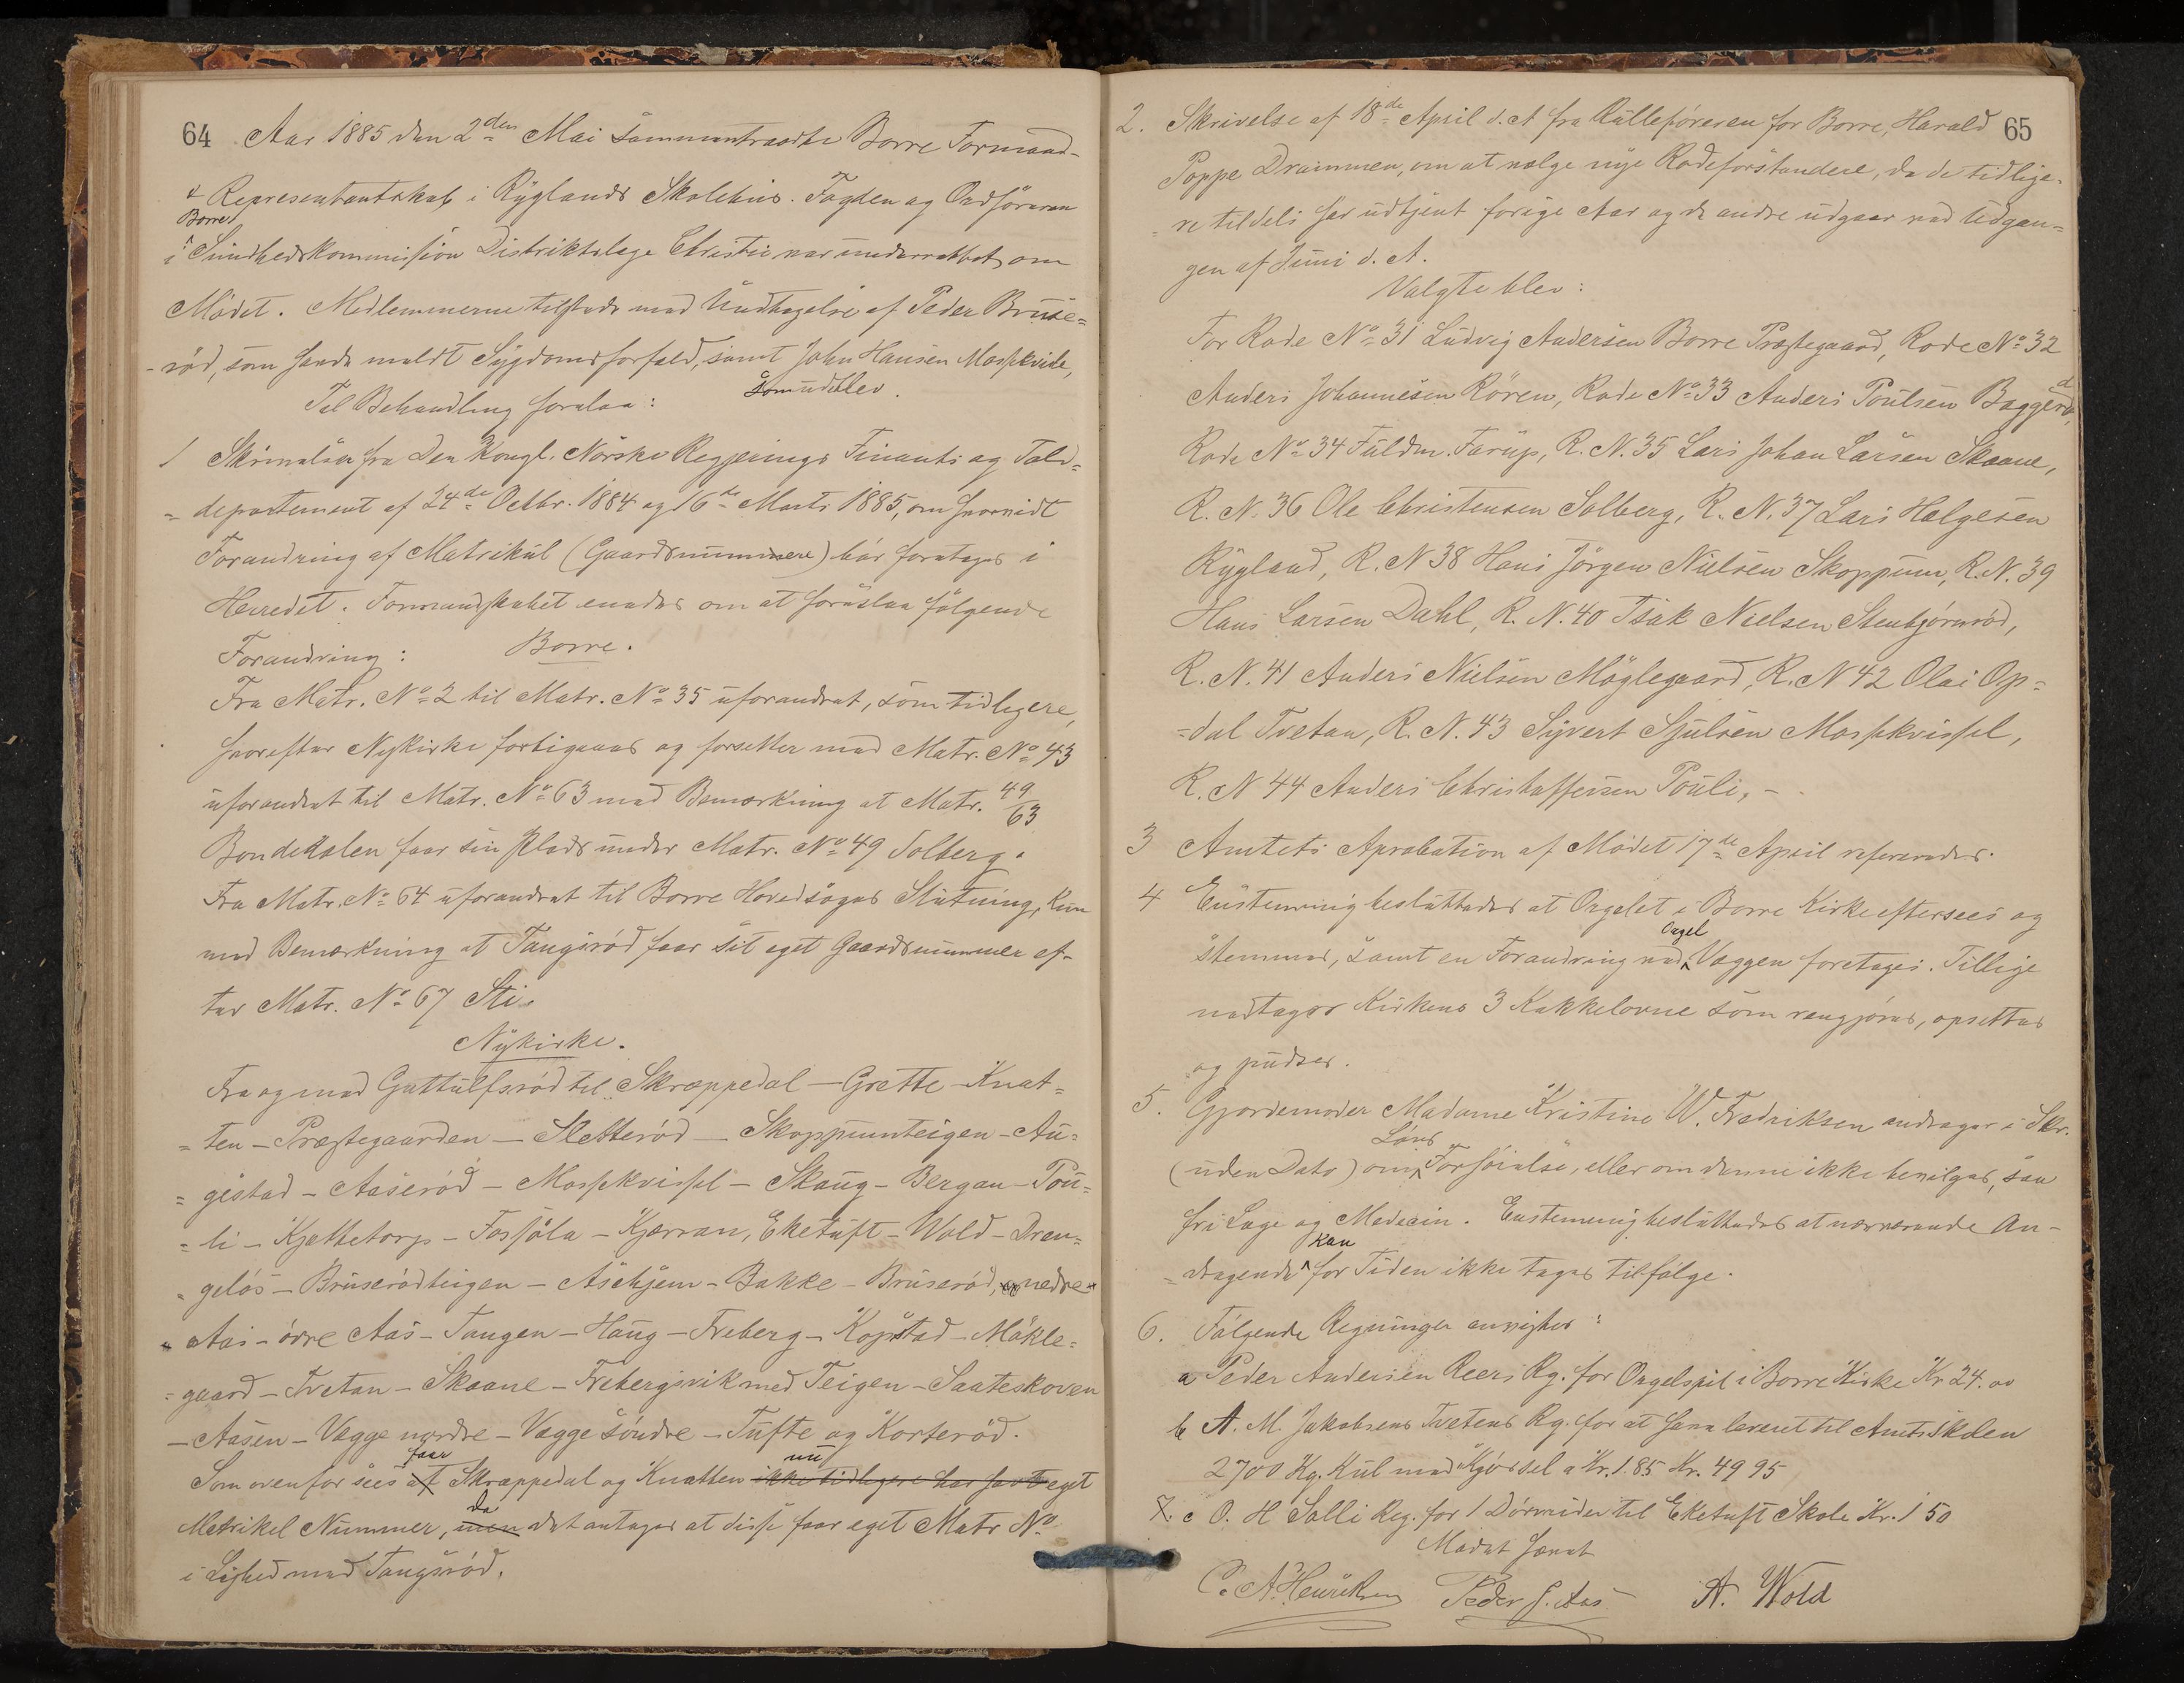 64 Aar 1885 den 2den Mai sammentraadte Borre Formand-
& Representantskab i Ryglands Skolehus. Fogden og Ordföreren
i Borre Sundhedskommission Distriktslæge Christie var underrettet om
Mödet. Medlemmerne tilstede med Undtagelse af Peder Bruse=
-röd, som havde meldt Sygdomsforfald, samt John Hansen Moskvile,
som udeblev.
Til Behandling forelaa:
1 Skrivelser fra Den Kongl. Norske Regjerings Finants og Told=
= departement af 24de Octbr. 1884 og 16de Marts 1885, om hvorvidt
Forandring af Matrikul (Gaardsnummere) bör foretages i
Herredet. Formandskabet enedes om at foreslaa fölgende
Forandring: Borre.
Fra Matr. No 2 til Matr. No 35 uforandret, som tidligere,
hvorefter Nykirke forbigaaes og forsetter med Matr. No 43
uforandret til Matr. No 63 med Bemærkning at Matr. 49/63
Bondedalen faar sin Plads under Matr. No 49 Solberg.
Fra Matr. No 64 uforandret til Borre Hovedsogns Slutning, kun
med Bemærkning at Tangsröd faar sit eget Gaardsnummer ef-
ter Matr. No 67 Sti.
Nykirke.
Fra og med Guttulfsröd til Skræppedal – Grette – Knat=
= ten – Præstegaarden – Sletteröd – Skoppumteigen – Au=
= gestad – Aaseröd – Moskvissel – Skaug – Bergan – Pou=
= li – Kjættetorp – Fossöla – Kjærran, Eketuft – Wold – Dren=
= gelös – Bruserödteigen – Askjem – Bakke – Bruseröd, nedre
Aas – övre Aas – Tangen – Haug – Freberg – Kopstad – Mökle=
= gaard – Tvetan – Skaane – Frebergsvik med Teigen – Saateskoven
– Aasen – Vegge nordre – Vegge söndre – Tufte og Korteröd.
Som ovenfor sees faar Skræppedal og Knatten nu ikke tidligere har havt eget
Matrikel Nummer, men da det antages at disse faar eget Matr No
i Lighed med Tangsröd.
65
2. Skrivelse af 18de April d. A fra Rulleföreren for Borre, Harald
Poppe Drammen, om at vælge nye Rodeforstandere, da de tidlige-
= re tildels har udtjent forige Aar og de andre udgaar ved Udgan=
gen af Juni d. A.
Valgte blev:
For Rode No 31 Ludvig Andersen Borre Præstegaard, Rode No 32
Anders Johannesen Rören, Rode No 33 Anders Poulsen Baggerö d,
Rode No 34 Fuldm. Farup, R. N. 35 Lars Johan Larsen Skaane,
R. N. 36 Ole Christensen Solberg, R. N. 37 Lars Helgesen
Rygland, R. N 38 Hans Jörgen Nielsen Skoppum, R. N. 39
Hans Larsen Dahl, R. N. 40 Isak Nielsen Stenbjörnröd,
R. N. 41 Anders Nielsen Möglegaard, R. N 42 Olai Op=
=dal Tvetan, R. N. 43 Syvert Sjulsen Moskvissel,
R. N 44 Anders Christoffersen Pouli, –
3 Amtets Aprobation af Mödet 17de April refereredes.
4 Enstemmig besluttedes at Orgelet i Borre Kirke eftersees og
stemmes, samt en Forandring ved Orgel Væggen foretages. Tillige
nedtages Kirkens 3 Kakkelovne som rengjöres, opsettes
og pudses.
5. Gjordemoder Madame Kristine W. Fredriksen andrager i Skr.
(uden Dato) om Löns Forhöielse, eller om denne ikke bevilges, saa
fri Læge og Medecin. Enstemmig besluttedes at nærværende An-
= dragende kan for Tiden ikke tages tilfölge.
6. Fölgende Regninger anvistes:
a Peder Andersen Reers Rg. for Orgelspil i Borre Kirke Kr 24.00
b A. M. Jakobsens Tvetens Rg. for at have leveret til Amtsskolen
2700 Kg. Kul med Kjörsel a Kr. 1.85 Kr. 49 95
7. c O. H Solli Reg. for 1 Dörvrider til Eketuft Skole Kr. 1 50
Mödet hævet
C. A. Henriksen Peder J. Aas A. Wold